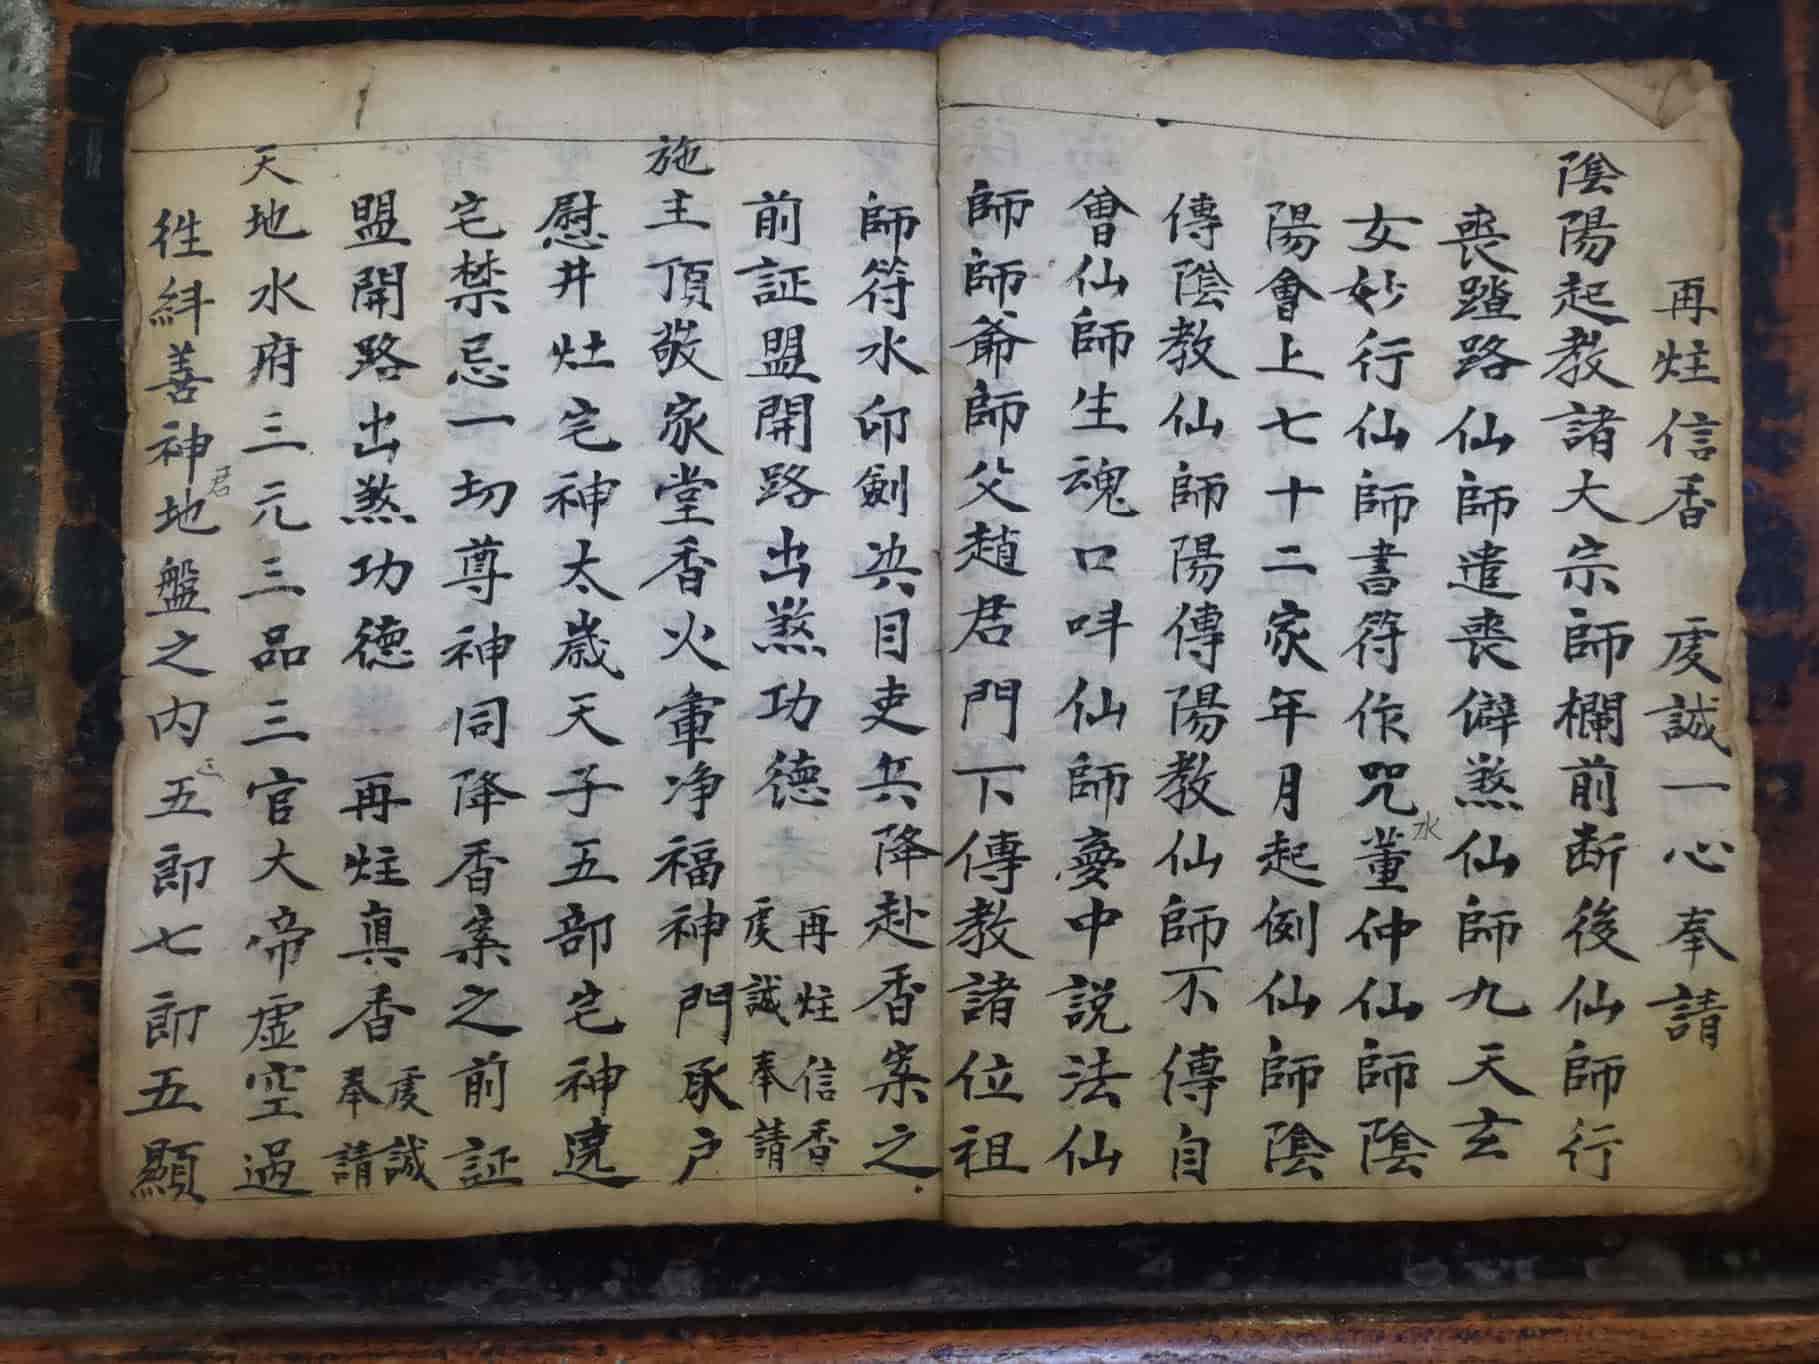 再炷信香　虔誠一心奉請
陰陽起教諸大宗師欄前断後仙師行
喪踏路仙師遣喪僻煞仙師九天玄
女妙行仙師書符作咒水董仲仙師陰
陽會上七十二家年月起例仙師陰
傳陰教仙師陽傳陽教仙師不傳自
會仙師生魂口呌仙師夢中説法仙
師師爺師父趙君門下傳教諸位祖
師符水印劍决目吏兵降赴香案之
前証盟開路出煞功德　再炷信香虔誠奉請
施主頂敬家堂香火軍净福神門丞户
慰井灶宅神太歲天子五部宅神遶
宅禁忌一切尊神同降香案之前証
盟開路出煞功德　再炷真香虔誠奉請
天地水府三元三品三官大帝虚空過
徃紏善神君地盤之内五郎七郎五顯